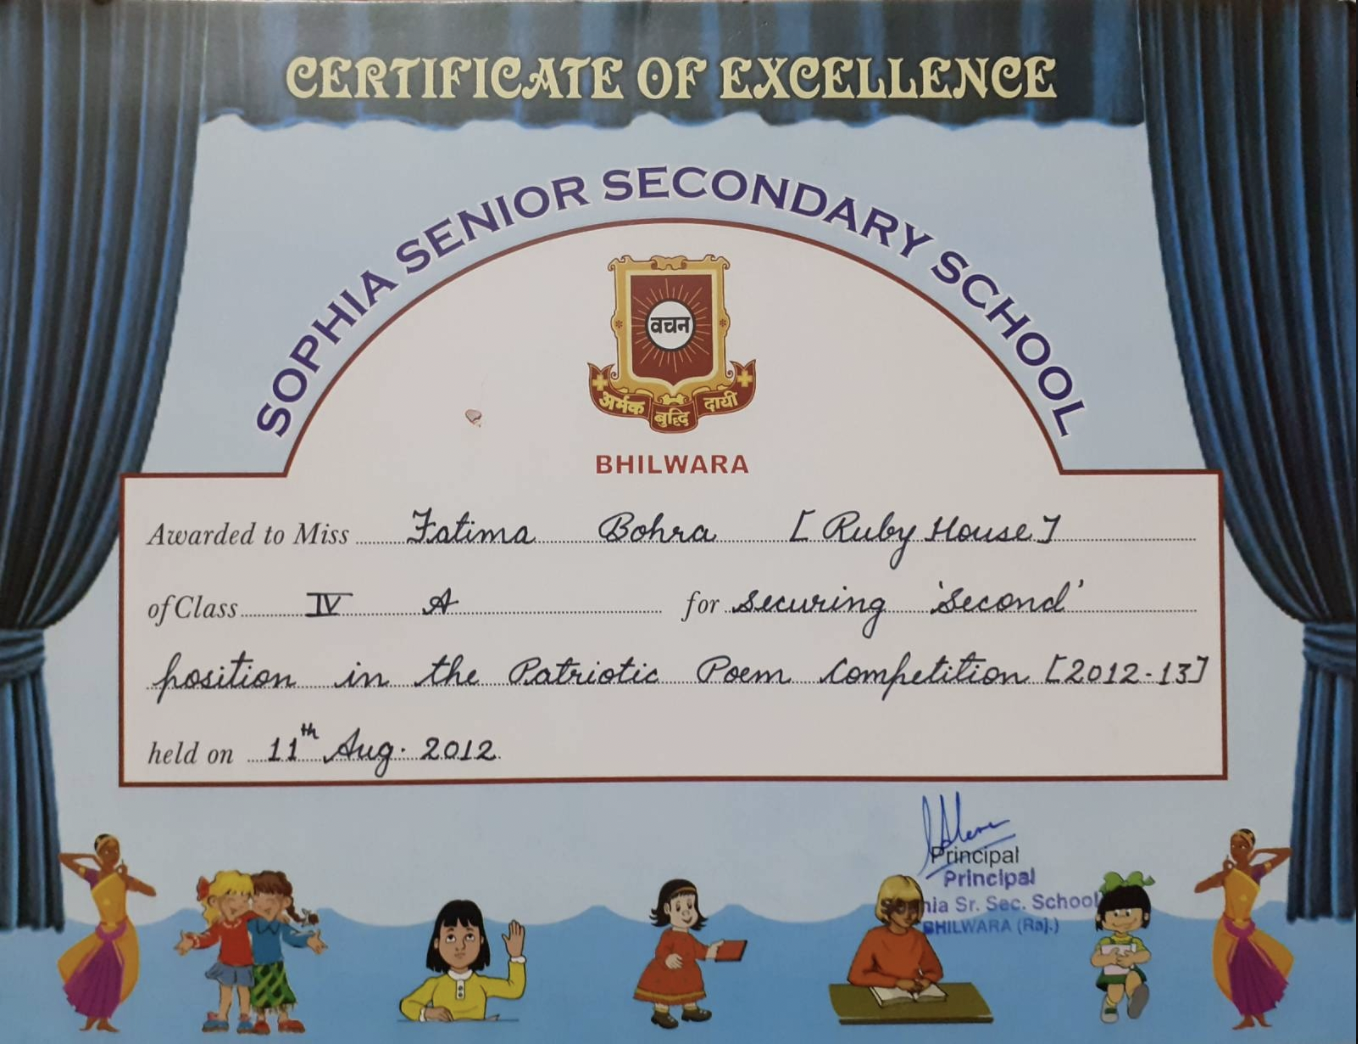 CERTIFICATE OF EXCELLENCE
SOPHIA SENIOR SECONDARY SCHOOL
वचन
अर्मक बुद्धि दायी
BHILWARA
Awarded to Miss Fatima Bohra [Ruby House]
of Class IV A for securing 'Second'
position in the Patriotic Poem Competition [2012-13]
held on 11th Aug. 2012
Principal
Principal
Sr. Sec. School
BHILWARA (Raj.)